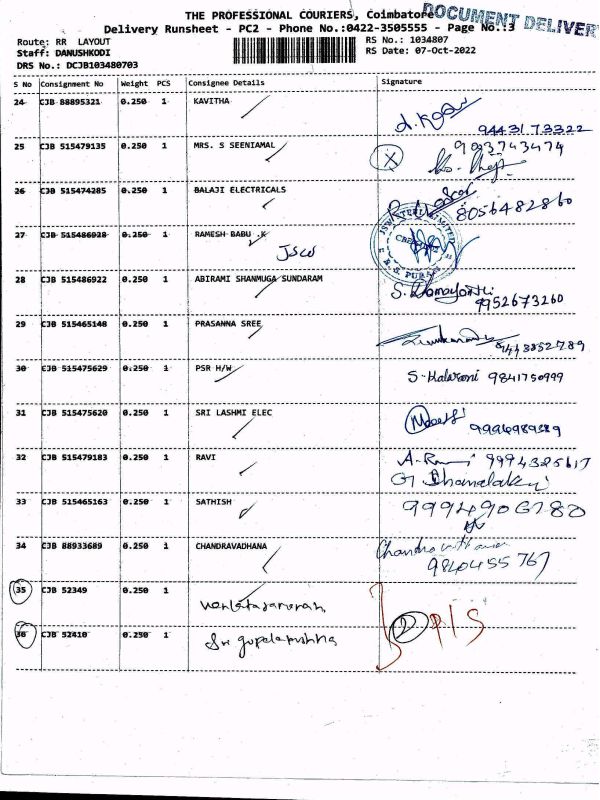 THE PROFESSIONAL COURIERS, Coimbatore
DOCUMENT DELIVERY
Delivery Runsheet - PC2 - Phone No.:0422-3505555 - Page No.:3
Route: RR LAYOUT
RS No.: 1034807
Staff: DANUSHKODI
RS Date: 07-Oct-2022
DRS No.: DCJB103480703
S No Consignment No Weight PCS Consignee Details Signature
24 CJB 88895321 0.250 1 KAVITHA
94431 73322
25 CJB 515479135 0.250 1 MRS. S SEENIAMAL
26 CJB 515474285 0.250 1 BALAJI ELECTRICALS
8056482860
27 CJB 515486928 0.250 1 RAMESH BABU .K
JSW
R.S. PURAM
28 CJB 515486922 0.250 1 ABIRAMI SHANMUGA SUNDARAM
9952673260
29 CJB 515465148 0.250 1 PRASANNA SREE
30 CJB 515475629 0.250 1 PSR H/W
9841750999
31 CJB 515475620 0.250 1 SRI LASHMI ELEC
32 CJB 515479183 0.250 1 RAVI
33 CJB 515465163 0.250 1 SATHISH
34 CJB 88933689 0.250 1 CHANDRAVADHANA
9840455767
35 CJB 52349 0.250 1
36 CJB 52410 0.250 1
Sri gopalakrishna
2